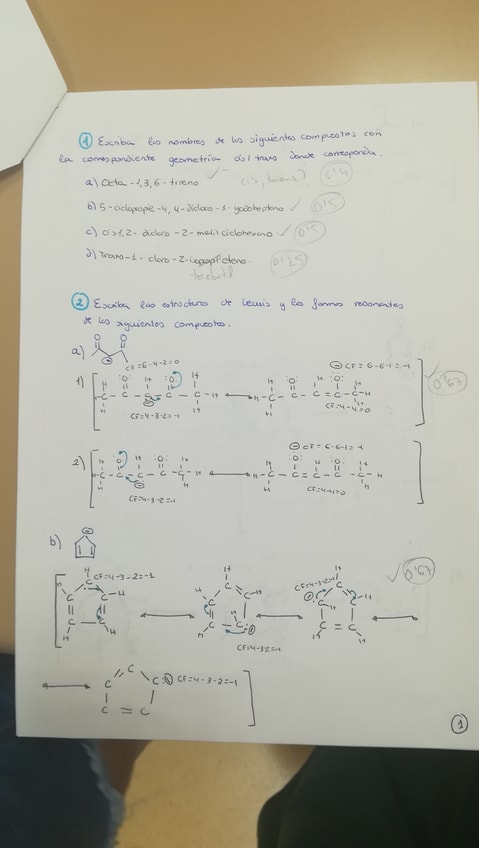 ① Escriba los nombres de los siguientes compuestos con
la correspondiente geometría cis/trans donde corresponda.
a) Octa-1,3,6-trieno 0'4
b) 5-ciclopropil-4,4-dicloro-1-yodohepteno 0'5
c) cis 1,2-dicloro-2-metilciclohexeno 0'5
d) Trans-1-cloro-2-isopropileteno. 0'25
② Escriba las estructuras de Lewis y las formas resonantes
de los siguientes compuestos.
a)
CF=6-4-2=0
CF=6-6-1=-1
1)
CF=4-3-2=-1
CF=4-4=0
0'67
CF=6-6-1=-1
2)
CF=4-3-2=-1
CF=4-4=0
b)
CF=4-3-2=-1
CF=4-3-2=-1
0'67
CF=4-3-2=-1
CF=4-3-2=-1
①